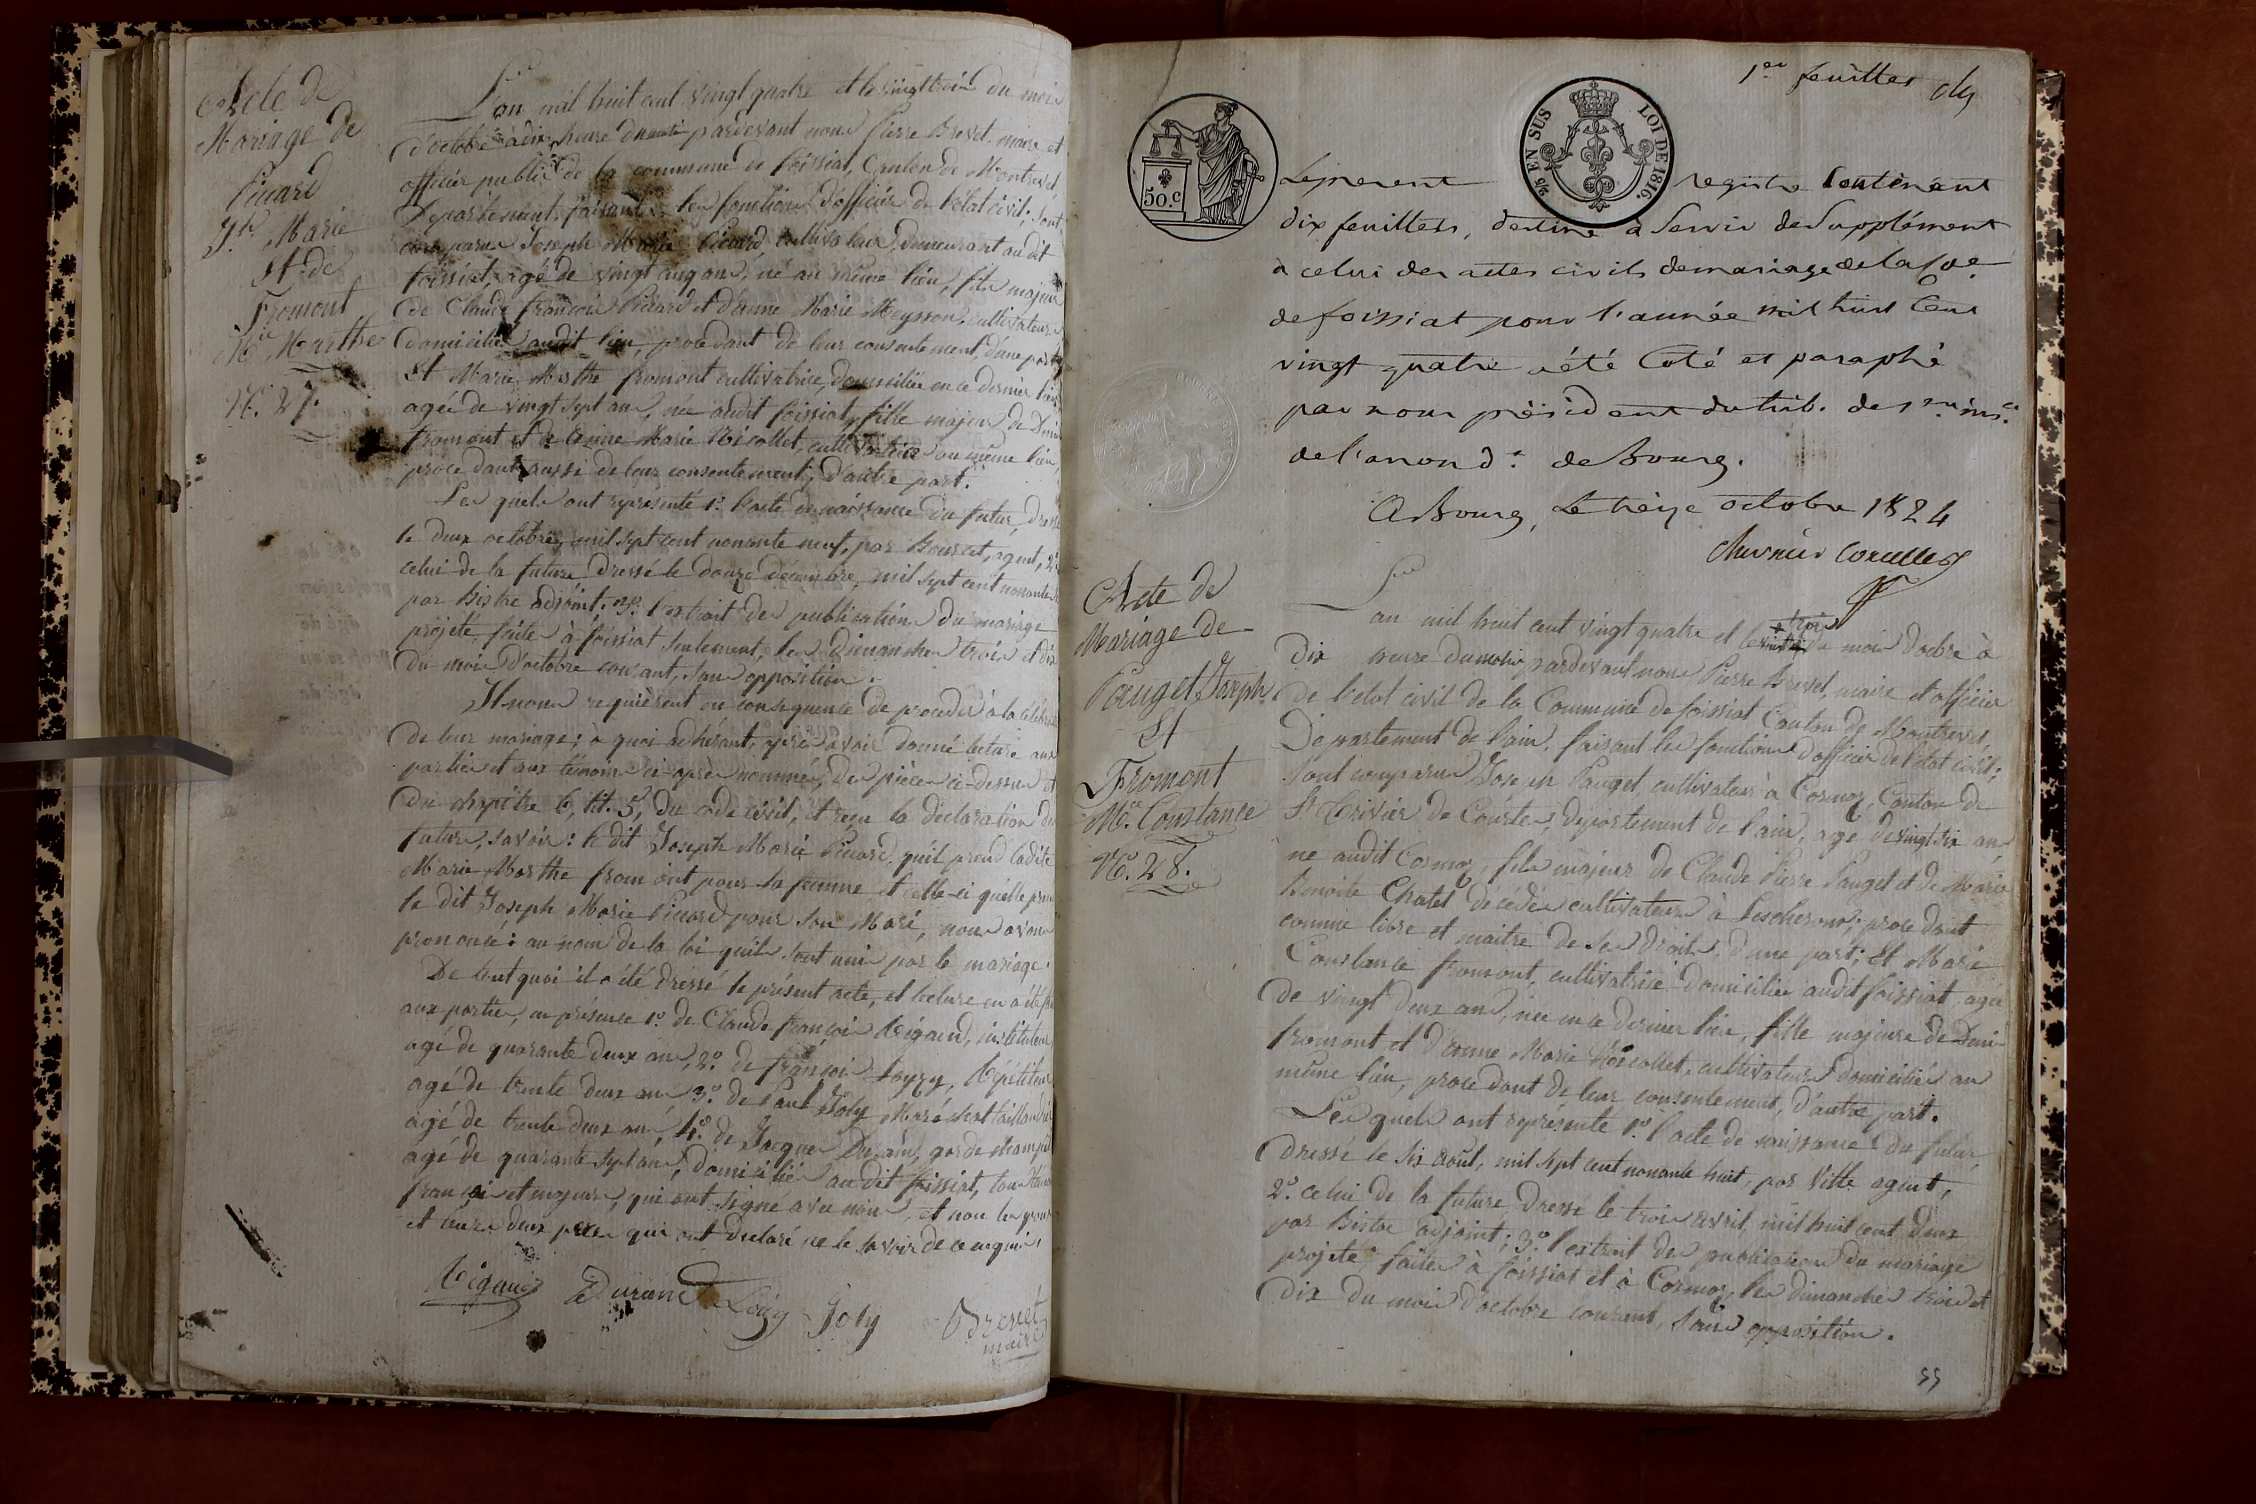 Acte de
Mariage de
Picard
Jh. Marie
Et de
Fromont
Mie. Marthe
N°. 27.
L'an mil huit cent vingt quatre et le vingt trois du mois
d'octobre à dix heure du matin pardevant nous Pierre Brevet maire et
officier public de la commune de foissiat, Canton de Montrevel
Departement faisant les fonctions d'officier de l'état civil; sont
comparus Joseph Marie Picard cultivateur, demeurant au dit
foissiat, agé de vingt cinq ans, né au même lieu, fils majeur
de Claude françois Picard et d'anne Marie Meysson, cultivateurs
domiciliés au dit lieu, procedant de leur consentement, d'une part
Et Marie Marthe fromont cultivatrice, domiciliée en ce dernier lieu
agée de vingt sept ans, née audit foissiat, fille majeure de Denis
fromont et de anne Marie Nicollet, cultivateurs au même lieu,
procedant aussi de leur consentement, d'autre part.
Les quels ont representé 1°. l'acte de naissance du futur, dressé
le deux octobre, mil sept cent nonante neuf, par Bourcet, agent, 2°.
celui de la future dressé le douze décembre, mil sept cent nonante
par Bistre adjoint. 3°. l'extrait des publications du mariage
projeté, faites à foissiat seulement, les dimanches trois et dix
du mois d'octobre courant, sans opposition.
Et nous requièrent en conséquence de procéder à la célébration
de leur mariage; à quoi adhérant, après avoir donné lecture aux
parties et aux témoins ci-après nommés, des pièces ci-dessus et
du chapitre 6, tit. 5, du code civil, et reçu la déclaration des
futurs, savoir: le dit Joseph Marie Picard, qu'il prend ladite
Marie Marthe fromont pour sa femme, et celle-ci qu'elle prend
le dit Joseph Marie Picard pour son Mari, nous avons
prononcé: au nom de la loi qu'ils sont unis par le mariage.
De tout quoi il a été dressé le présent acte, et lecture en a été faite
aux parties, en présence 1°. de Claude françois Rigaud, instituteur
agé de quarante deux ans, 2°. de françois Loyzy, Répétiteur
agé de trente deux ans 3°. de Paul Joly Maréchal taillandier
agé de trente deux ans, 4°. de Jacques Durand, garde champêtre
agé de quarante sept ans, domiciliés au dit foissiat, tous
français et majeurs, qui ont signé avec nous, et non les époux
et leurs deux pères qui ont declaré ne le savoir de ce enquis.
Rigaud Durand Loizy Joly Brevet
maire
1er feuillet
50.c
2/5 EN SUS LOI DE 1816.
Le present registre Contenant
dix feuillets, destiné a Servir de Supplément
a celui des actes civils de mariage de la Coe
de foissiat pour l'année mil huit Cent
vingt quatre a été Coté et paraphé
par nous président du trib. de 1re insce.
de l'arrondt. de Bourg.
A Bourg, Le treize octobre 1824
Chevrier Corcelles
Acte de
Mariage de
Pauget Joseph
Et
Fromont
Mie. Constance
N°. 28.
L'an mil huit cent vingt quatre et le trois du mois d'octobre à
dix heure du matin pardevant nous Pierre Brevet, maire et officier
de l'état civil de la Commune de foissiat Canton de Montrevel,
Departement de l'ain, faisant les fonctions d'officier de l'état civil;
sont comparus Joseph Pauget, cultivateur à Cormoz, Canton de
St Trivier de Courtes, département de l'ain, agé de vingt six ans
né audit Cormoz, fils majeur de Claude Pierre Pauget et de Marie
Benoite Chatel décédés cultivateurs à Lescheroux; procedant
comme libre et maitre de ses droits, d'une part; Et Marie
Constance fromont, cultivatrice domiciliée audit foissiat, agée
de vingt deux ans, née en ce dernier lieu, fille majeure de Denis
fromont et d'anne Marie Nicollet, cultivateurs domiciliés au
même lieu, procedant de leur consentement, d'autre part.
Les quels ont représenté 1°. l'acte de naissance du futur,
dressé le six août, mil sept cent nonante huit, par Vitte agent,
2°. celui de la future, dressé le trois avril, mil huit cent deux
par Bistre adjoint; 3°. l'extrait des publications du mariage
projeté, faites à foissiat et à Cormoz, les dimanches trois et
dix du mois d'octobre courant, sans opposition.
55